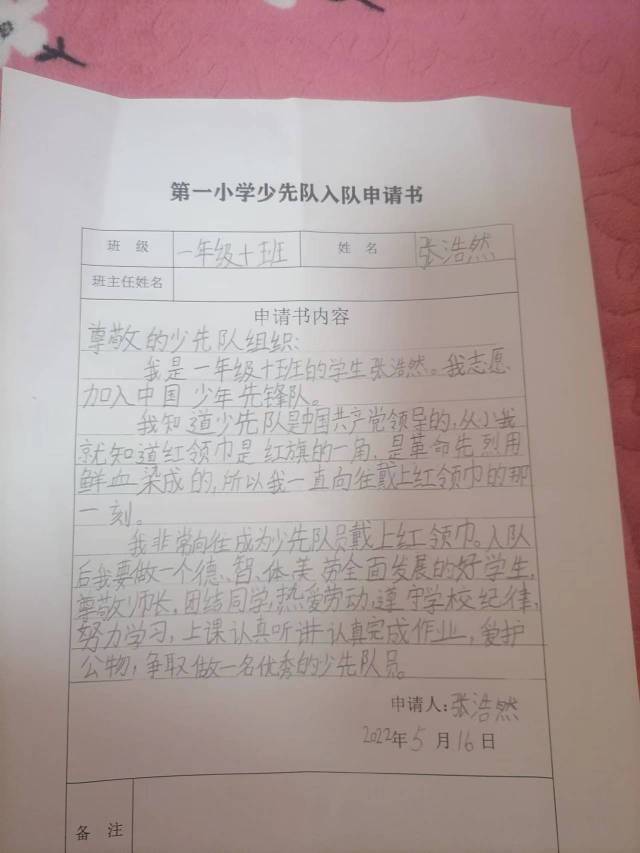 第一小学少先队入队申请书
班 级 一年级十班 姓 名 张浩然
班主任姓名
申请书内容
尊敬的少先队组织：
我是一年级十班的学生张浩然。我志愿
加入中国少年先锋队。
我知道少先队是中国共产党领导的，从小我
就知道红领巾是红旗的一角，是革命先烈用
鲜血染成的，所以我一直向往戴上红领巾的那
一刻。
我非常向往成为少先队员戴上红领巾。入队
后我要做一个德、智、体、美劳全面发展的好学生，
尊敬师长，团结同学，热爱劳动，遵守学校纪律，
努力学习，上课认真听讲认真完成作业，爱护
公物，争取做一名优秀的少先队员。
申请人：张浩然
2022年5月16日
备 注